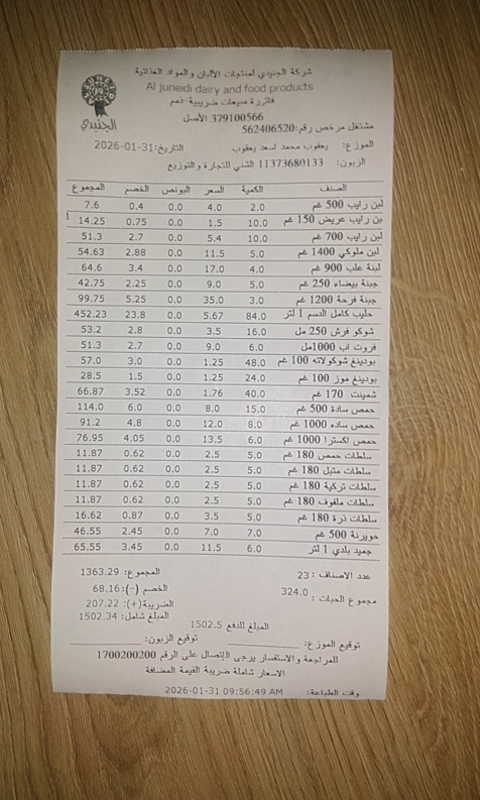 شركة الجنيدي لمنتجات الألبان والمواد الغذائية
Al juneidi dairy and food products
فاتورة مبيعات ضريبية نعم
379100566 الأصل
مشتغل مرخص رقم:562406520
الجنيدي
الموزع: يعقوب محمد اسعد يعقوب التاريخ:2026-01-31
الزبون: 11373680133 الشني للتجارة والتوزيع
الصنف الكمية السعر البونص الخصم المجموع
لبن رايب 500 غم 2.0 4.0 0.0 0.4 7.6
بن رايب عريض 150 غم 10.0 1.5 0.0 0.75 14.25
لبن رايب 700 غم 10.0 5.4 0.0 2.7 51.3
لبن ملوكي 1400 غم 5.0 11.5 0.0 2.88 54.63
لبنة علب 900 غم 4.0 17.0 0.0 3.4 64.6
جبنة بيضاء 250 غم 5.0 9.0 0.0 2.25 42.75
جبنة فرحة 1200 غم 3.0 35.0 0.0 5.25 99.75
حليب كامل الدسم 1 لتر 84.0 5.67 0.0 23.8 452.23
شوكو فرش 250 مل 16.0 3.5 0.0 2.8 53.2
فروت اب 1000مل 6.0 9.0 0.0 2.7 51.3
بودينغ شوكولاته 100 غم 48.0 1.25 0.0 3.0 57.0
بودينغ موز 100 غم 24.0 1.25 0.0 1.5 28.5
شمينت 170 غم 40.0 1.76 0.0 3.52 66.87
حمص سادة 500 غم 15.0 8.0 0.0 6.0 114.0
حمص ساده 1000 غم 8.0 12.0 0.0 4.8 91.2
حمص اكسترا 1000 غم 6.0 13.5 0.0 4.05 76.95
سلطات حمص 180 غم 5.0 2.5 0.0 0.62 11.87
سلطات متبل 180 غم 5.0 2.5 0.0 0.62 11.87
سلطات تركية 180 غم 5.0 2.5 0.0 0.62 11.87
سلطات ملفوف 180 غم 5.0 2.5 0.0 0.62 11.87
سلطات ذرة 180 غم 5.0 3.5 0.0 0.87 16.62
حويرنة 500 غم 7.0 7.0 0.0 2.45 46.55
جميد بلدي 1 لتر 6.0 11.5 0.0 3.45 65.55
عدد الاصناف : 23 المجموع: 1363.29
مجموع الحبات : 324.0 الخصم (-): 68.16
الضريبة(+): 207.22
المبلغ شامل: 1502.34
المبلغ للدفع 1502.5
توقيع الموزع: توقيع الزبون:
للمراجعة والاستفسار يرجى الإتصال على الرقم 1700200200
الاسعار شاملة ضريبة القيمة المضافة
وقت الطباعة: 2026-01-31 09:56:49 AM